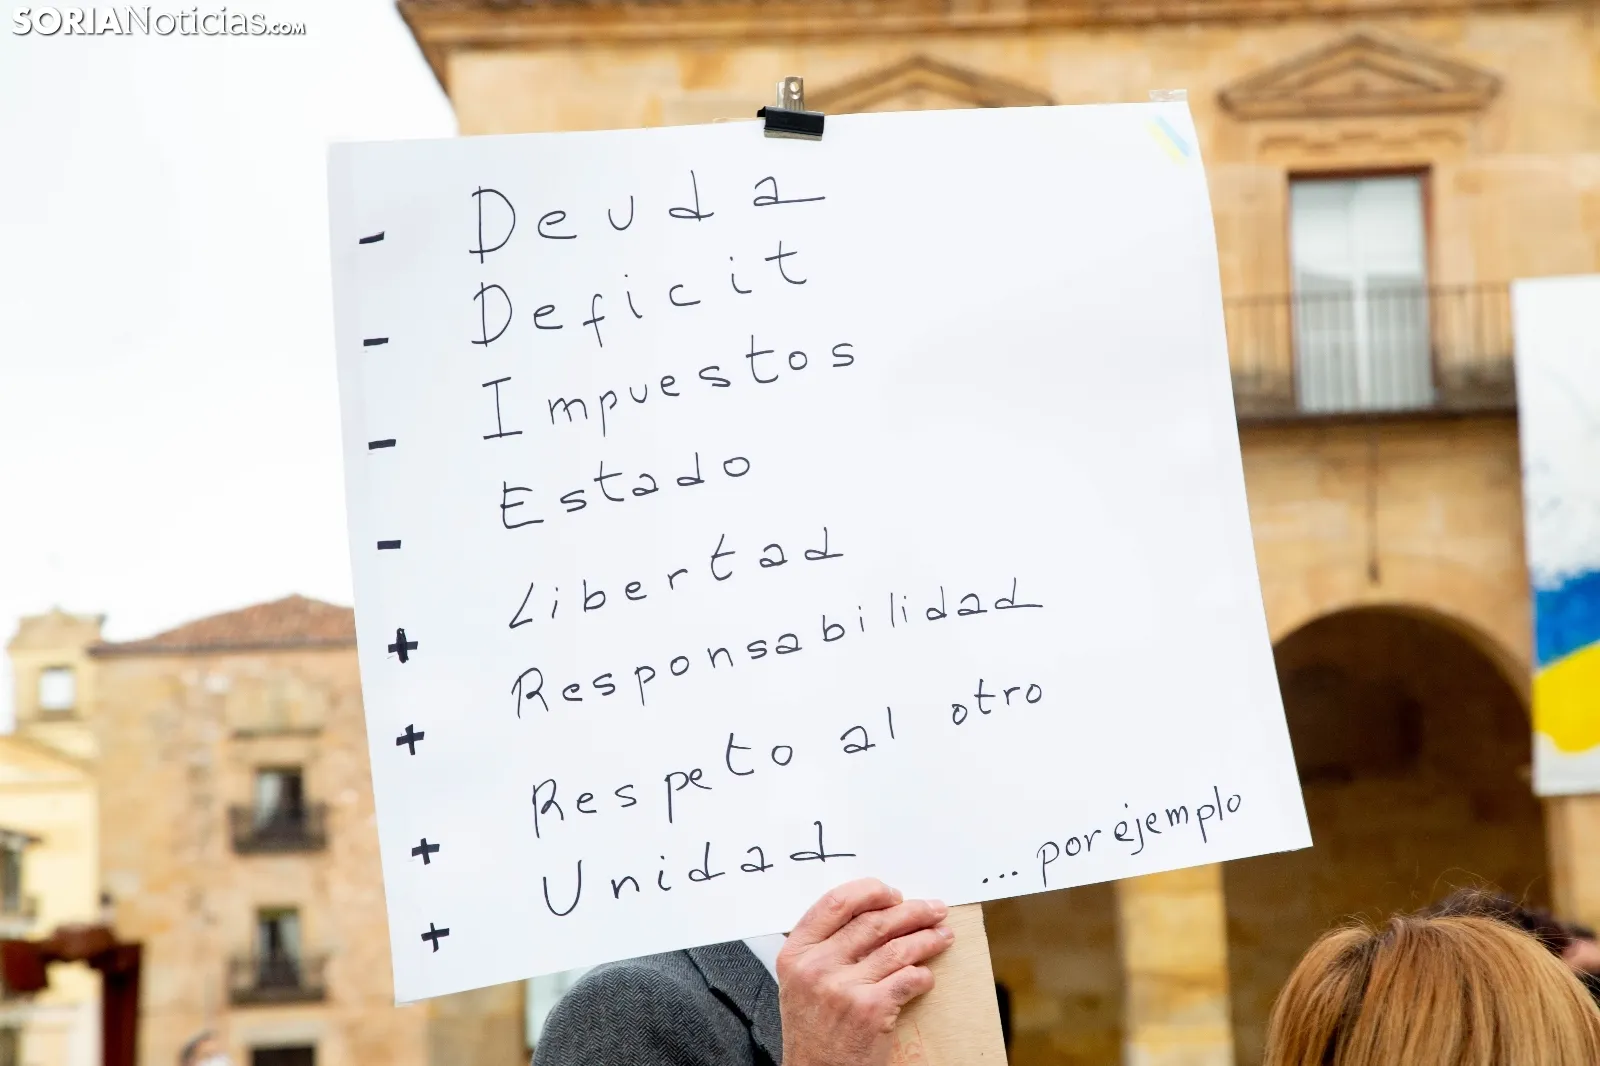 SORIANoticias.com
- Deuda
- Deficit
- Impuestos
- Estado
+ Libertad
+ Responsabilidad
+ Respeto al otro
+ Unidad
... por ejemplo